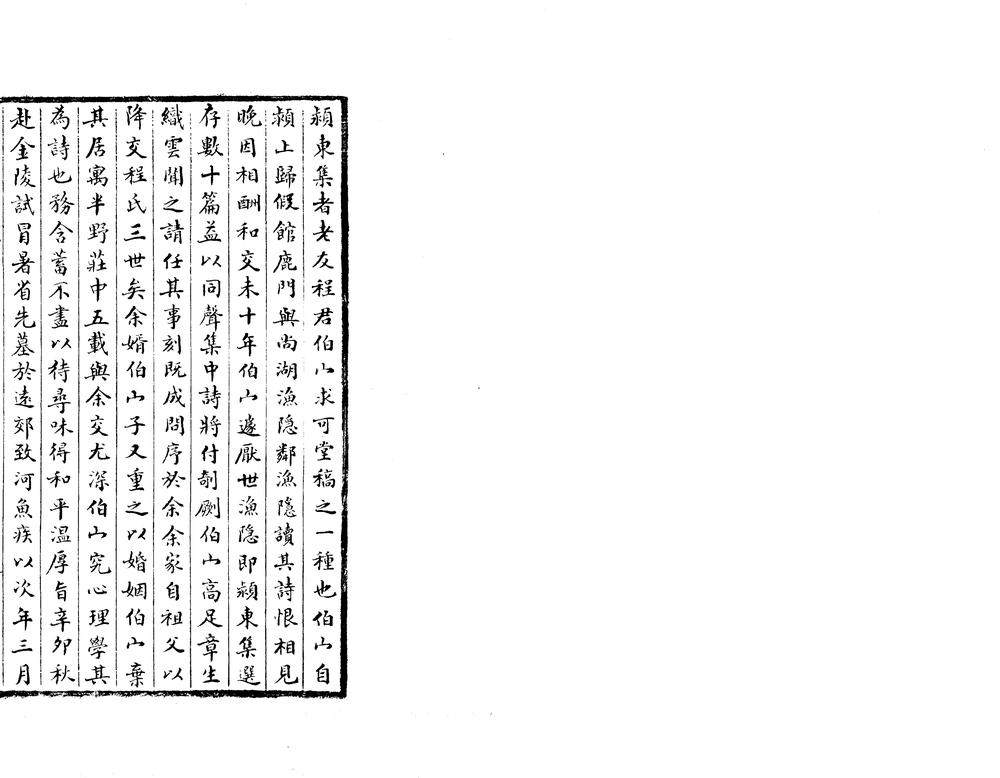 潁東集者老友程君伯山求可堂稿之一種也伯山自
潁上歸假館鹿門與尚湖漁隐鄰漁隱讀其詩恨相見
晚因相酬和交未十年伯山遽厭世漁隐即潁東集選
存數十篇益以同聲集中詩將付剞劂伯山高足章生
織雲聞之請任其事刻既成問序於余余家自祖父以
降交程氏三世矣余婿伯山子又重之以婚姻伯山棄
其居寓半野莊中五載與余交尤深伯山究心理學其
為詩也務含蓄不盡以待尋味得和平溫厚旨辛卯秋
赴金陵試冒暑省先墓於遠郊致河魚疾以次年三月